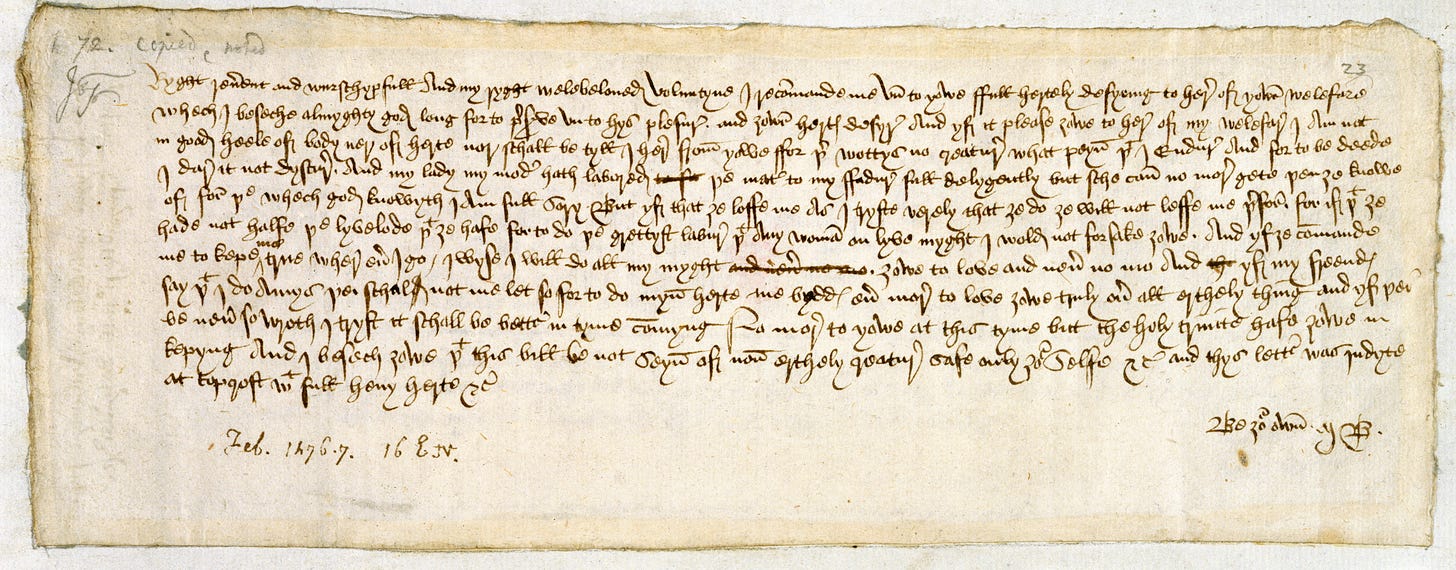 72. Copied, noted
23
Ryght reuerent and wurschypfull And my ryght welebeloued Voluntyne I recomande me vn to yowe ffull hertely desyring to her of yowr welefare
whech I beseche almyghty god long for to preserve vn to hys plesur. and yowr hertes desyr And yf it please yowe to her of my welefar I Am not
in good heele of body ner of herte nor schall be tyll I her from yowe ffor þer wottys no creatur what peyn þt I Endur And for to be deede
I dar it not dyscur. And my lady my moder hath labored þe mater to my ffadur full delygently but sche can no mor gete þen ȝe knowe
of for þe whech god knowyth I Am full Sory But yf that ȝe loffe me As I tryste verely that ȝe do ȝe will not leffe me þerfor. for if þt ȝe
hade not halfe þe lyvelode þt ȝe hafe for to do þe grettyst labur þt Any woman on lyve myght I wold not forsake ȝowe. And yf ȝe comande
me to kepe me true wher euer I go / I wyse I will do all my myght and neuer no mo. ȝowe to love and neuer no mo And yf my freendes
say þt I do Amys þei schall not me let so for to do myn herte me byddes euer mor to love ȝowe truly ouer all erthely thing and yf þei
be neuer so wroth I tryst it schall be better in tyme comyng No mor to yowe at this tyme but the holy trinite hafe ȝowe in
kepyng And I besech ȝowe þt this bill be not Seyn of non erthely creatur safe only ȝour Selfe &c and thys letter was indyte
at topcroft wt full heuy herte &c
Be ȝour own M B.
Feb. 1476.7. 16 E. IV.